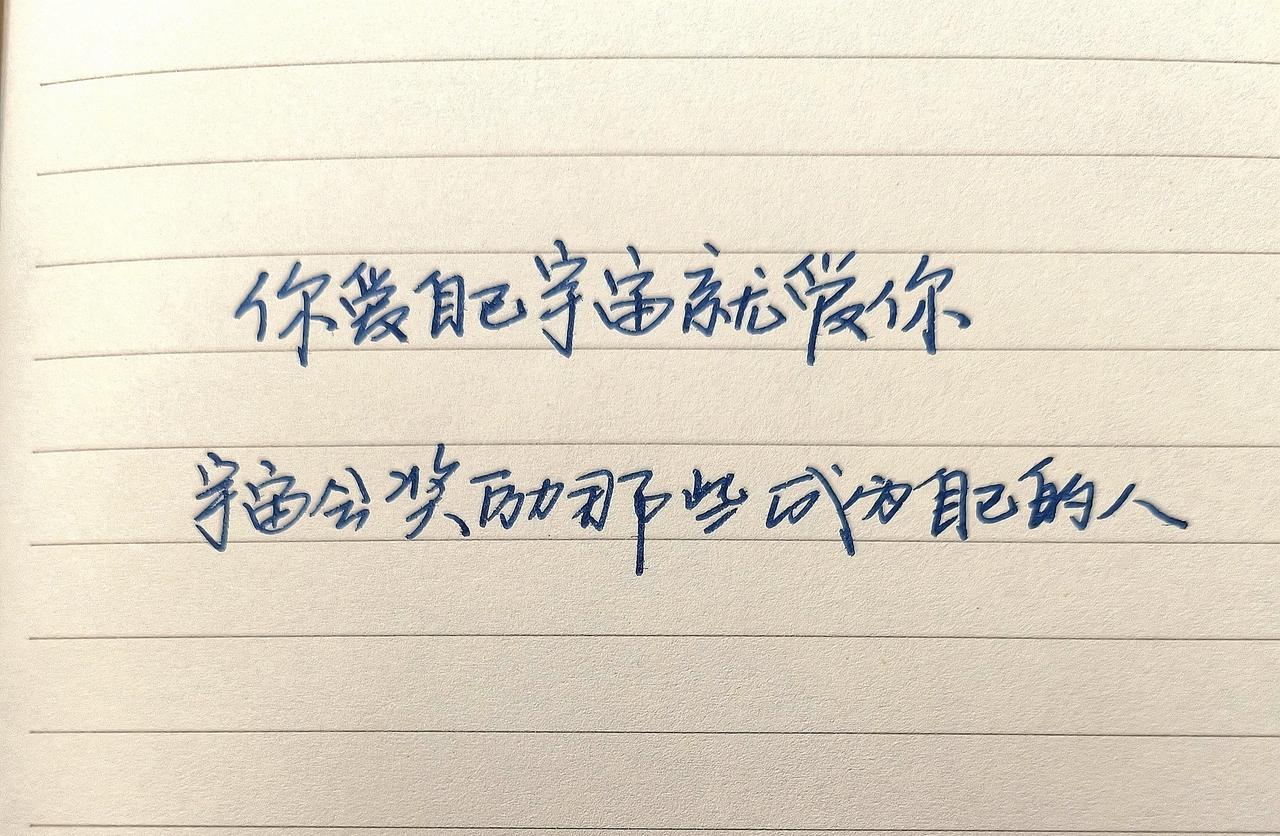 你爱自己宇宙就爱你
宇宙会奖励那些成为自己的人